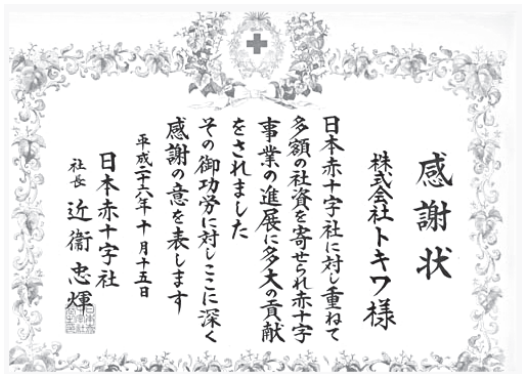 感謝状
株式会社トキワ様
日本赤十字社に対し重ねて
多額の社資を寄せられ赤十字
事業の進展に多大の貢献
をされました
その御功労に対しここに深く
感謝の意を表します
平成二十六年十月十五日
日本赤十字社
社長 近衞忠煇